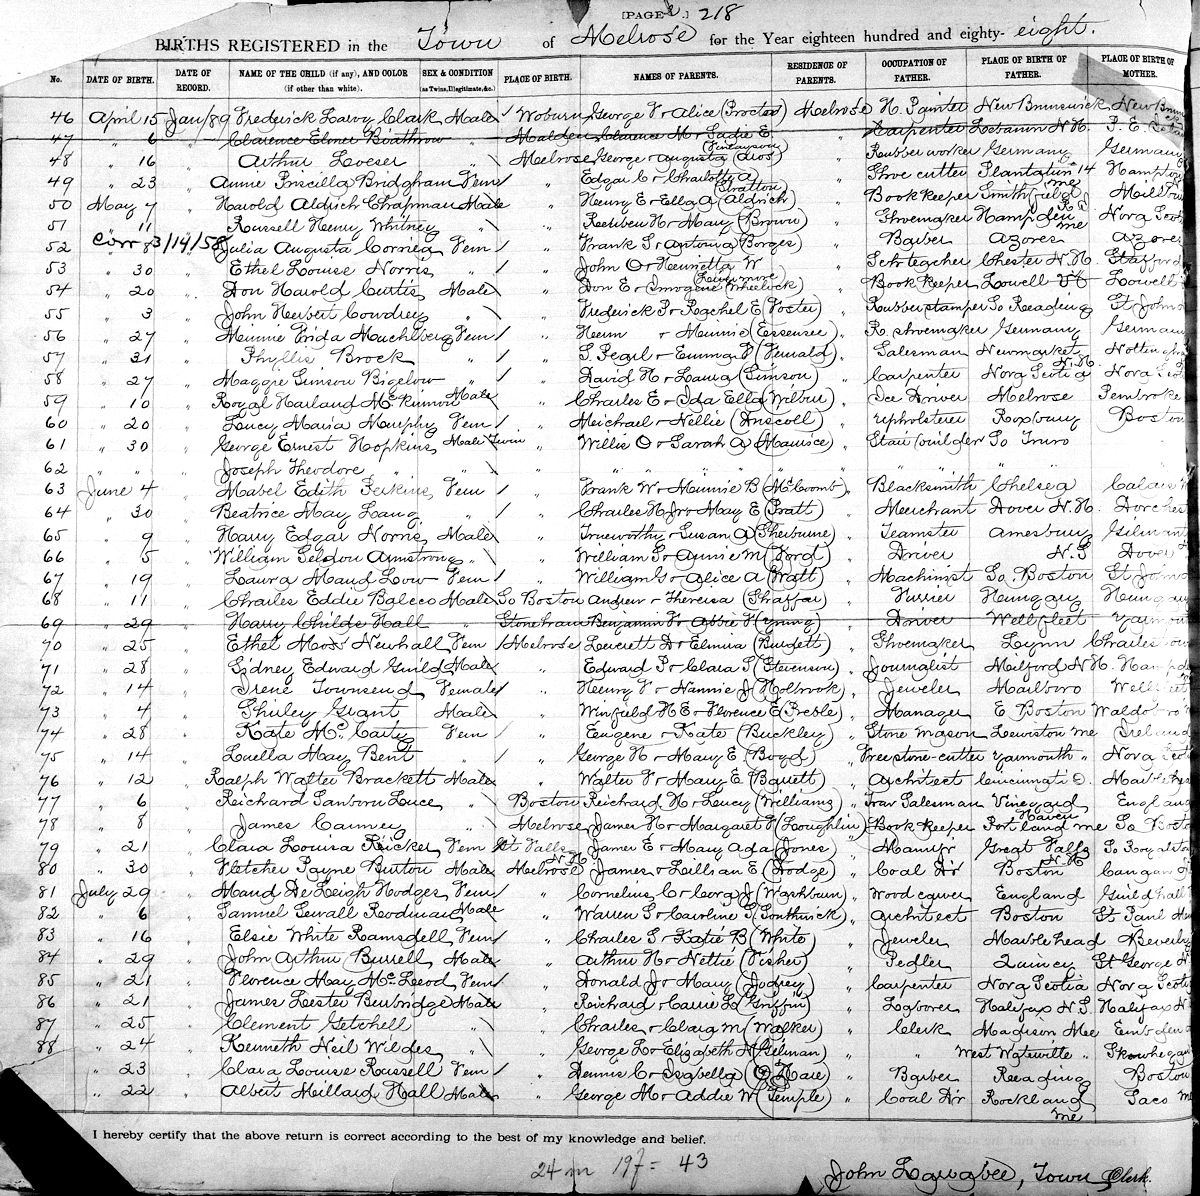 [PAGE 2.] 218
BIRTHS REGISTERED in the Town of Melrose for the Year eighteen hundred and eighty-eight.
No. DATE OF BIRTH. DATE OF RECORD. NAME OF THE CHILD (if any), AND COLOR (if other than white). SEX & CONDITION (as Twins, Illegitimate, &c.) PLACE OF BIRTH. NAMES OF PARENTS. RESIDENCE OF PARENTS. OCCUPATION OF FATHER. PLACE OF BIRTH OF FATHER. PLACE OF BIRTH OF MOTHER.
46 April 15 Jan/89 Frederick Clark Male Woburn George F & Alice (Procter) Melrose H. Painter New Brunswick New Brun
47 " 6 " Clarence Elmer Malden Clarence M & Sadie E. (Finlayson) Carpenter Lebanon N.H. P. E.
48 " 16 " Arthur Loeser " Melrose George & Augusta " Rubber worker Germany Germany
49 " 23 " Annie Priscilla Bridgham Fem " Edgar C & Charlotte A (Stratton) " Shoe cutter Plantation 14 Me Hampton
50 May 7 " Harold Aldrich Chapman Male " Henry E & Ella A (Aldrich) " Book Keeper Smithfield R I
51 " 11 " Russell Henry Whitney " " Reuben H & May (Brown) " Shoemaker Hampden Me Nova Scotia
52 Corr 8 3/14/58 Julia Augusta Correia Fem " Frank S & Antonia Borges) " Barber Azores Azores
53 " 30 " Ethel Louise Norris " " John O & Henrietta W " Sch teacher Chester N.H. Stafford
54 " 20 " Don Harold Curtis Male " Don E & Imogene Wheelock) " Book Keeper Lowell Vt Lowell
55 " 3 " John Herbert Cowdrey " " Frederick P & Rachel E (Foster) " Rubber stamper So Reading St Johns
56 " 27 " Minnie Frida Muehlberg Fem " & Minnie " R. shoemaker Germany Germany
57 " 31 " Phyllis Brock " " & Emma F (Fernald) " Salesman Newmarket N.H. Notting
58 " 27 " Maggie Simson Bigelow " " David H & Laura (Simson) " Carpenter Nova Scotia Nova Sco
59 " 10 " Royal Harland McKinnon Male " Charles E & Ida Ella (Wilbur) " Ice Driver Melrose Pembroke
60 " 20 " Lucy Maria Murphy Fem " Michael & Nellie (Driscoll) " Upholsterer Roxbury Boston
61 " 30 " George Ernest Hopkins Male Twin " Willis O & Sarah A (Maurice) " Stair builder So Truro
62 " " " Joseph Theodore " " " " " " "
63 June 4 " Mabel Edith Perkins Fem " Frank W & Minnie B (McCoomb) " Blacksmith Chelsea Calais
64 " 30 " Beatrice May Lang " " Charles H Jr & May E (Pratt) " Merchant Dover N.H. Dorches
65 " 9 " Harry Edgar Norris Male " Trueworthy & Susan A (Sherburne) " Teamster Amesbury Gilmant
66 " 5 " William Seldon Armstrong " " William S & Annie M (Ford) " Driver N.S Dover
67 " 19 " Laura Maud Low Fem " William G & Alice A (Watt) " Machinist So. Boston St Johns
68 " 11 " Charles Eddie Male So Boston Andrew & Theresa " Hungary Hungary
69 " 29 " Harry Childs Hall " Stoneham Benjamin F & Abbie F (Young) " Driver Wellfleet Yarmout
70 " 25 " Ethel Moss Newhall Fem Melrose Everett D & Elmira (Burdett) " Shoemaker Lynn Charlestown
71 " 28 " Sidney Edward Guild Male " Edward P & Clara S (Stevenson) " Journalist Milford N.H. Hampd
72 " 14 " Irene Townsend Female " Henry F & Nannie J (Holbrook) " Jeweler Marlboro Wellfleet
73 " 4 " Shirley Grant Male " Winfield H E & Florence E (Preble) " Manager E Boston Waldoboro
74 " 28 " Kate McCarty Fem " Eugene & Kate (Buckley) " Stone Mason Lewiston Me Ireland
75 " 14 " Luella May Bent " " George N & Mary E (Boyd) " Freestone-cutter Yarmouth " Nova Scotia
76 " 12 " Ralph Walter Brackett Male " Walter F & Mary E (Barrett) " Architect Cincinnati O.
77 " 6 " Richard Sanborn Luce " Boston Richard H & Lucy (Williams) " Trav Salesman Vineyard Haven England
78 " 8 " James Canney " Melrose James H & Margaret F (Loughlin) " Book Keeper Portland Me So Boston
79 " 21 " Clara Louisa Ricker Fem Gt Falls N H James E & Mary Ada (Jones) " Manufr Great Falls N H So Royalston
80 " 30 " Fletcher Payne Burton Male Melrose James & Lillian E (Dodge) " Coal Dlr Boston Canaan
81 July 29 " Maud De Leigh Hodges Fem " Cornelius C & Cora J (Washburn) " Wood carver England Guildhall
82 " 6 " Samuel Sewall Rodman Male " Warren S & Caroline S (Southwick) " Architect Boston St Paul
83 " 16 " Elsie White Ramsdell Fem " Charles S & Katie B (White) " Jeweler Marblehead Beverly
84 " 29 " John Arthur Burrell Male " Arthur H & Nettie (Fisher) " Pedler Quincy St George
85 " 21 " Florence May McLeod Fem " Donald J & Mary (Godfrey) " Carpenter Nova Scotia Nova Scotia
86 " 21 " James Lester Burbridge Male " Richard & Carrie L (Griffin) " Laborer Halifax N.S. Halifax N
87 " 25 " Clement Getchell " " Charles & Clara M (Walker) " Clerk Madison Me Embden
88 " 24 " Kenneth Neil Wildes " " George L & Elizabeth H (Gilman) " " West Waterville " Skowhegan
" 23 " Clara Louise Russell Fem " Dennis C & Isabella (O'Hare) " Barber Reading Boston
" 22 " Albert Millard Hall Male " George M & Addie W (Temple) " Coal Dlr Rockland Me Saco Me
I hereby certify that the above return is correct according to the best of my knowledge and belief.
24 m 19 f = 43
John Larrabee, Town Clerk.